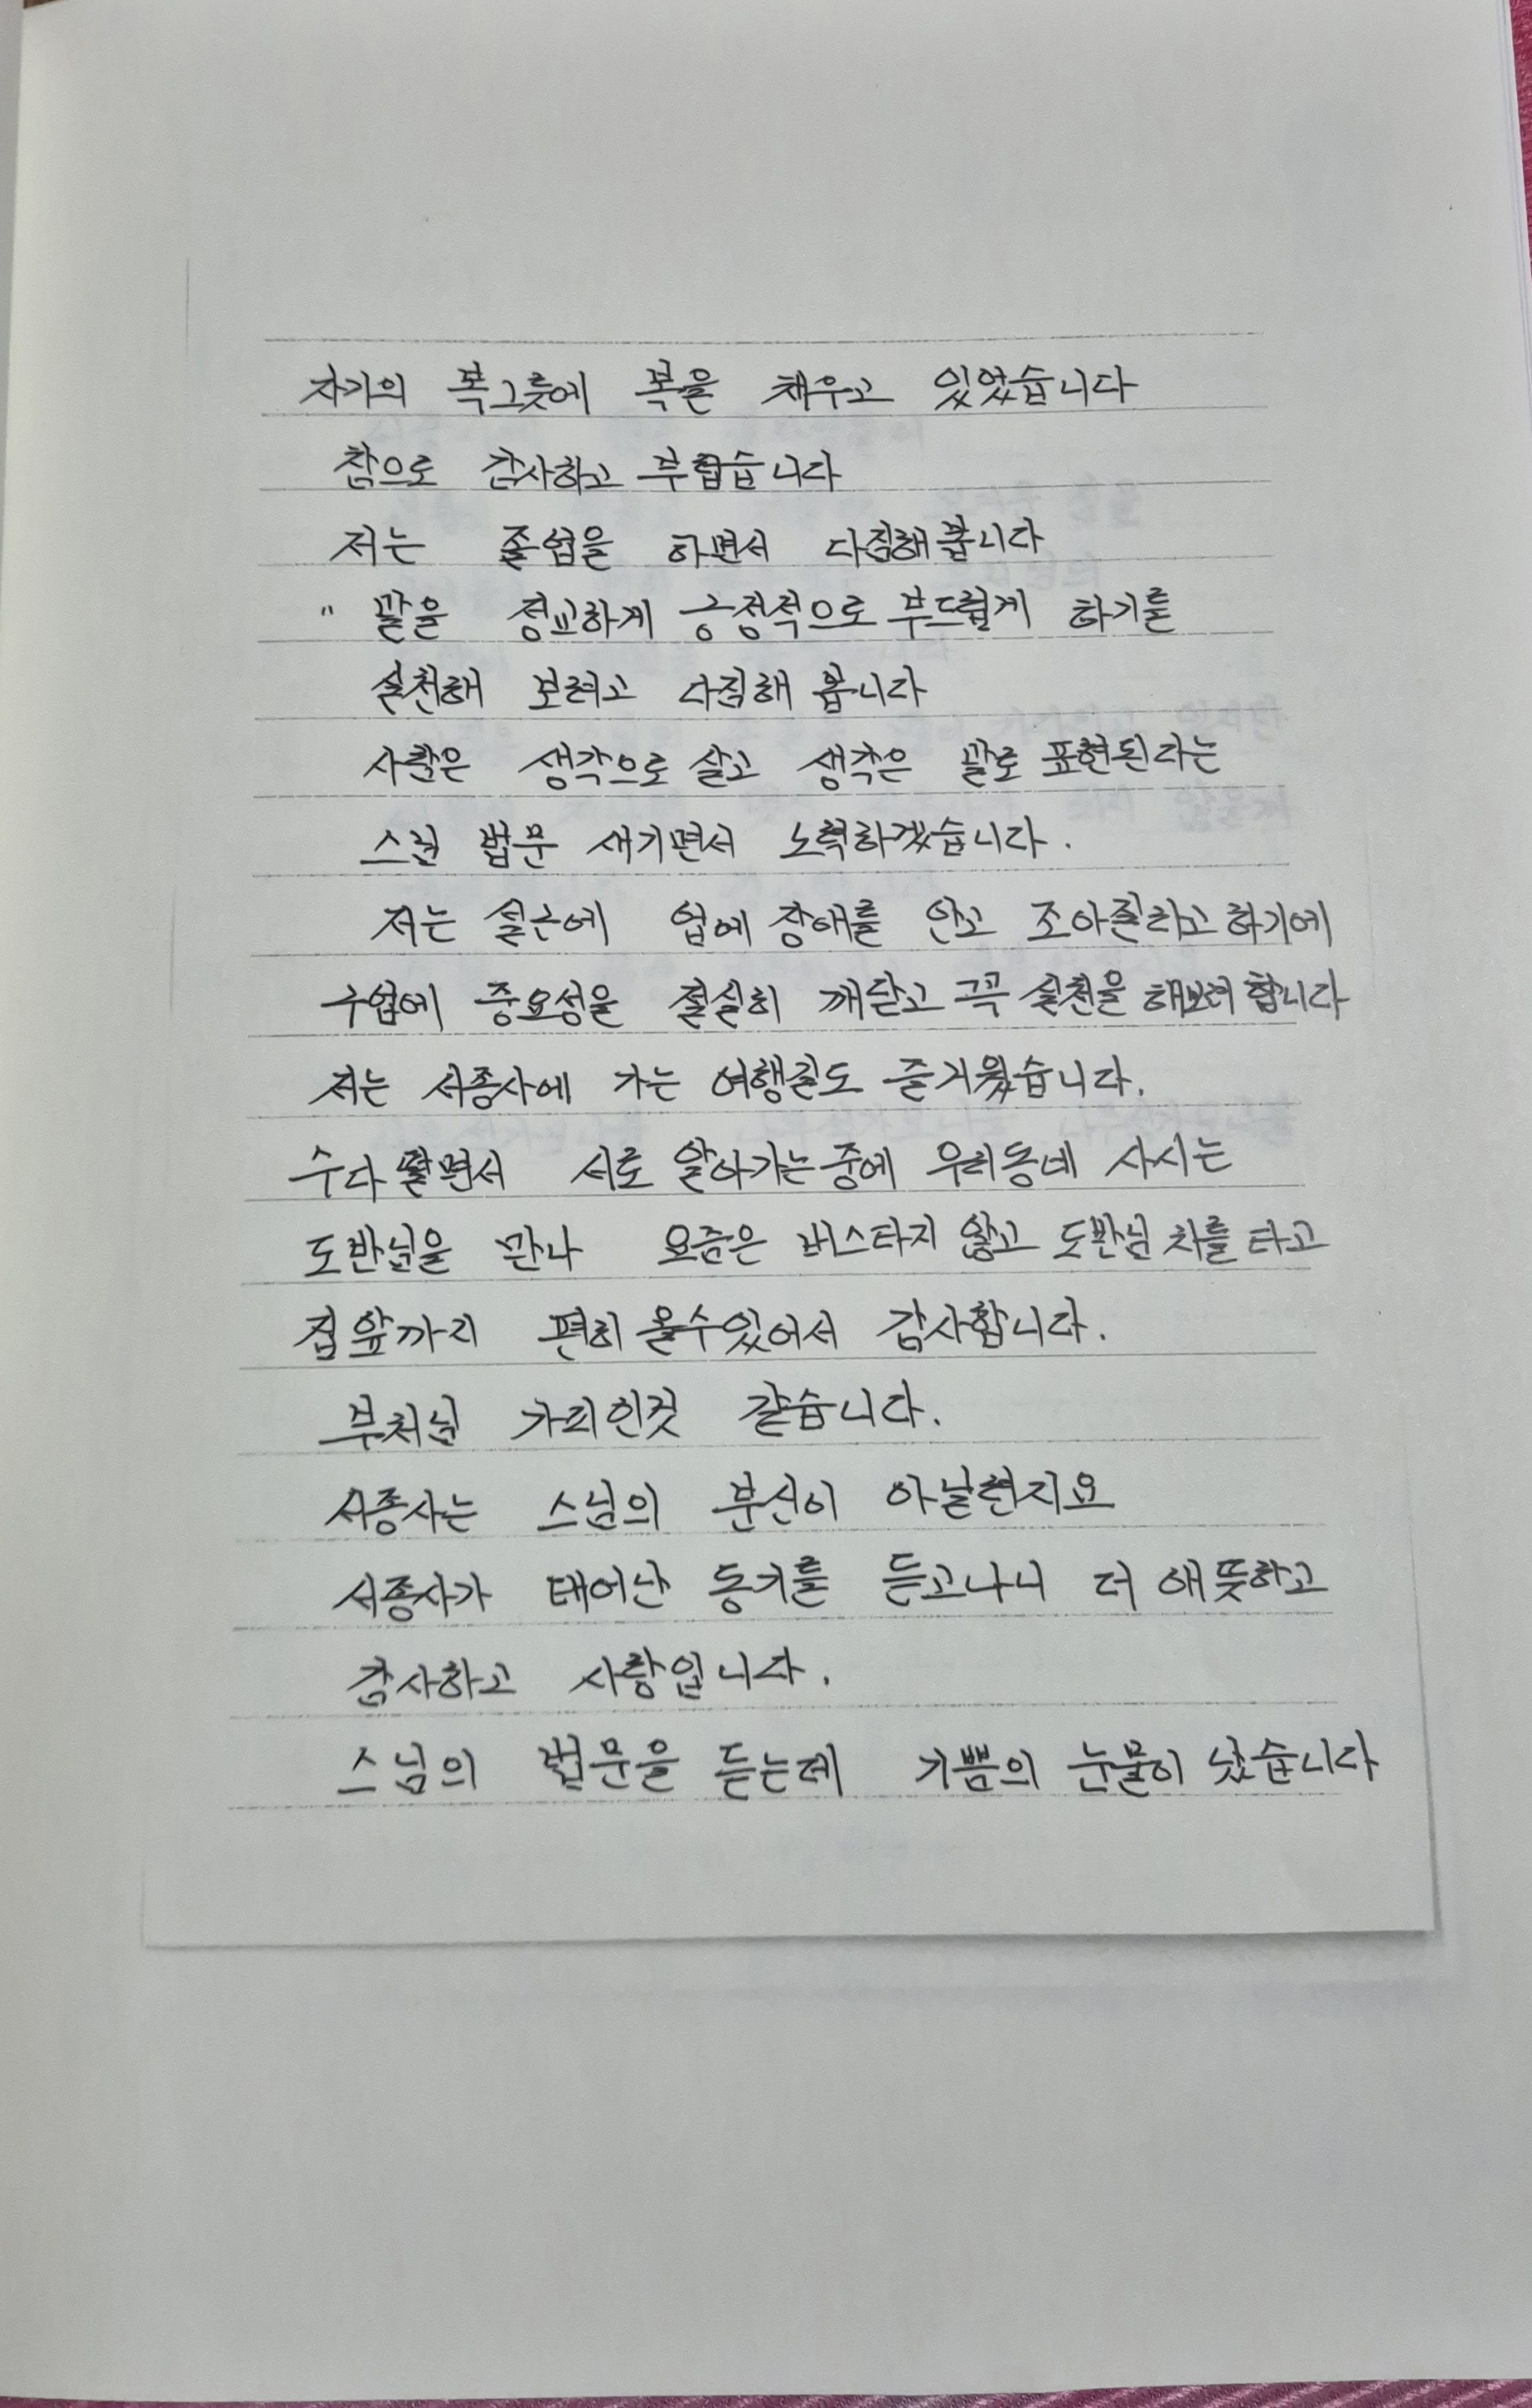 자기의 복그릇에 복을 채우고 있었습니다
참으로 감사하고 부럽습니다
저는 졸업을 하면서 다짐해 봅니다
" 말을 정교하게 긍정적으로 부드럽게 하기를
실천해 보려고 다짐해 봅니다
사람은 생각으로 살고 생각은 말로 표현된다는
스님 법문 새기면서 노력하겠습니다.
저는 설근에 업에 장애를 안고 조아질라고 하기에
구업에 중요성을 절실히 깨닫고 꼭 실천을 해보려 합니다
저는 서종사에 가는 여행길도 즐거웠습니다.
수다 떨면서 서로 알아가는중에 우리동네 사시는
도반님을 만나 요즘은 버스타지 않고 도반님 차를 타고
집앞까지 편히 올수있어서 감사합니다.
부처님 가피인것 같습니다.
서종사는 스님의 분신이 아닐련지요
서종사가 태어난 동기를 듣고나니 더 애뜻하고
감사하고 사랑입니다.
스님의 법문을 듣는데 기쁨의 눈물이 났습니다